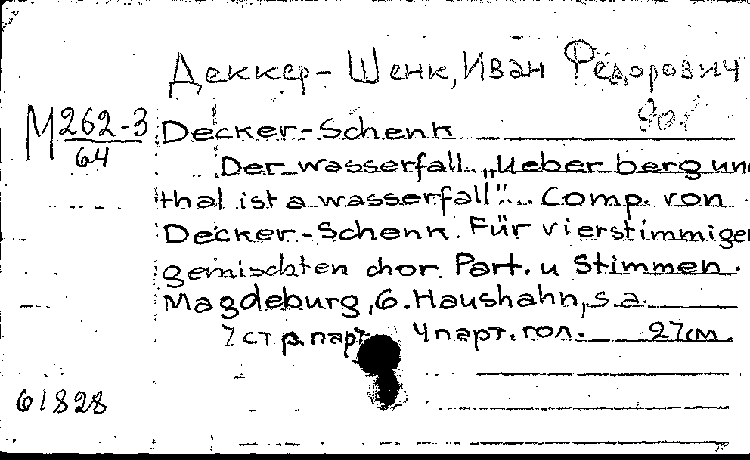 Деккер-Шенк, Иван Фёдорович
М262-3
64
Decker-Schenk
Der wasserfall. „Ueber berg un
thal ist a wasserfall". Comp. von
Decker-Schenk. Für vierstimmige
gemischten chor. Part. u Stimmen.
Magdeburg, G. Haushahn, s.a.
7 стр. парт. 4 парт. гол. 27см
61828